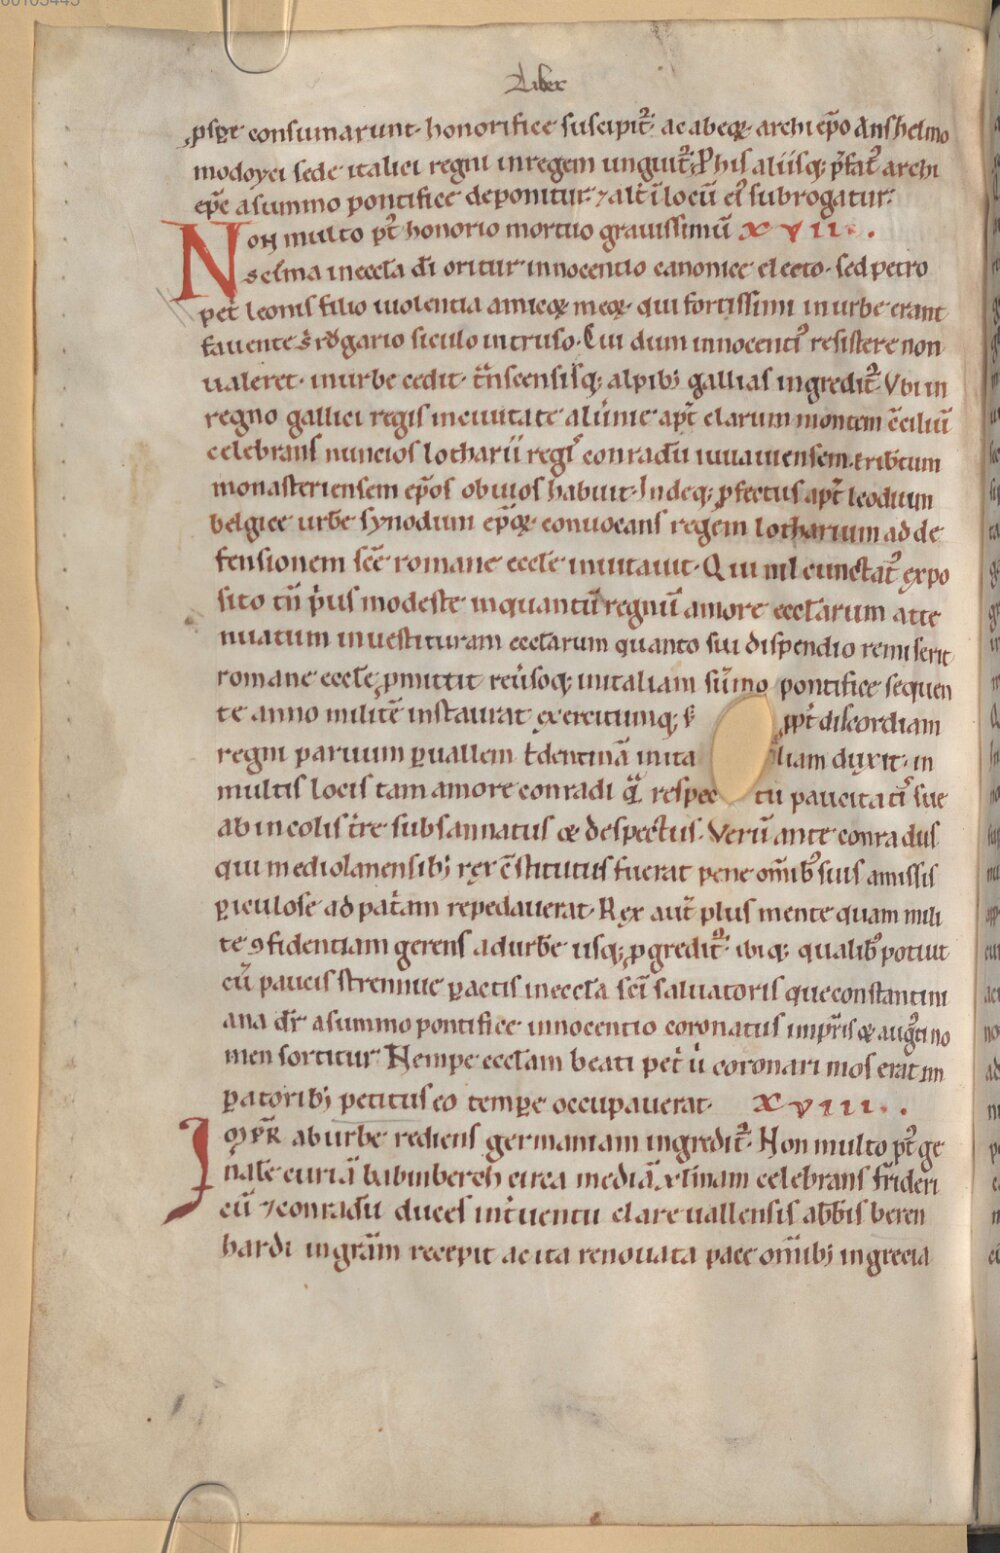 00103443
Liber
ꝓspe consumarunt· honorifice suscipit᷑· ac ab eoqꝫ· archiep̄o Anshelmo
modoyci sede italici regni in regem unguit᷑· Ꝓ his aliisqꝫ p̄fat᷒ archi
ep̄c a summo pontifice deponitur· ⁊ alt̄ ī locū ei᷒ subrogatur·
Non multo p᷒t honorio mortuo grauissimū XVII·.
scisma in eccła dī oritur innocentio canonice electo· sed petro
pet̄ leonis filio uiolentia amicoꝝ meoꝝ qui fortissimi in urbe erant
fauente ⁊ rogario siculo intruso· Cui dum innocenti᷒ resistere non
ualeret· in urbe cedit· t̄nscensisqꝫ alpibꝫ gallias ingredit᷑· Vbi in
regno gallici regis in ciuitate aluernie ap᷒t clarum montem c̄ciliū
celebrans nuncios lotharii regis conradū iuuauiensem· ecbertum
monasteriensem ep̄os obuios habuit· Indeqꝫ ꝓfectus ap᷒t leodium
belgice urbē synodum ep̄oꝝ conuocans regem lotharium ad de
fensionem sc̄e romane eccłe inuitauit· Qui nil cunctat᷒ expo
sito tn̄ p̄us modeste inquantū regnū amore eccłarum atte
nuatum inuestituram eccłarum quanto sui dispendio remiserit
romane eccłe ꝓmittit reūsoqꝫ in italiam sūmo pontifice sequen
te anno militē instaurat exercitumqꝫ s ꝓpt̄ discordiam
regni paruum ꝑ uallem t̄dentinā in ita liam duxit· in
multis locis tam amore conradi q̄ respec tu paucitatis sue
ab incolis t̄re subsannatus & despectus· Verū ante conradus
qui mediolanensibꝫ rex c̄stitutus fuerat pene om̄ibꝫ suis amissis
ꝑiculose ad pat̄am repedauerat· Rex aut̄ plus mente quam mili
te ꝯfidentiam gerens ad urbē usqꝫ ꝓgredit᷑· ibiqꝫ qualibꝫ potuit
cū paucis strennue ꝑactis in eccła sc̄i saluatoris que constantini
ana dr̄ a summo pontifice innocentio coronatus impr̄is & aug᷒ti no
men sortitur· Nempe eccłam beati pet̄ ū coronari mos erat im
ꝑatoribꝫ petitus eo tempe occupauerat· XVIII·.
Imꝑr ab urbe rediens germaniam ingredit᷑· Non multo p᷒t ge
n̄ale curiā babinberch circa mediā xl̄mam celebrans frideri
cū ⁊ conradū duces int̄uentu clareuallensis abb̄is beren
hardi in gr̄am recepit ac ita renouata pace om̄ibꝫ in grecia